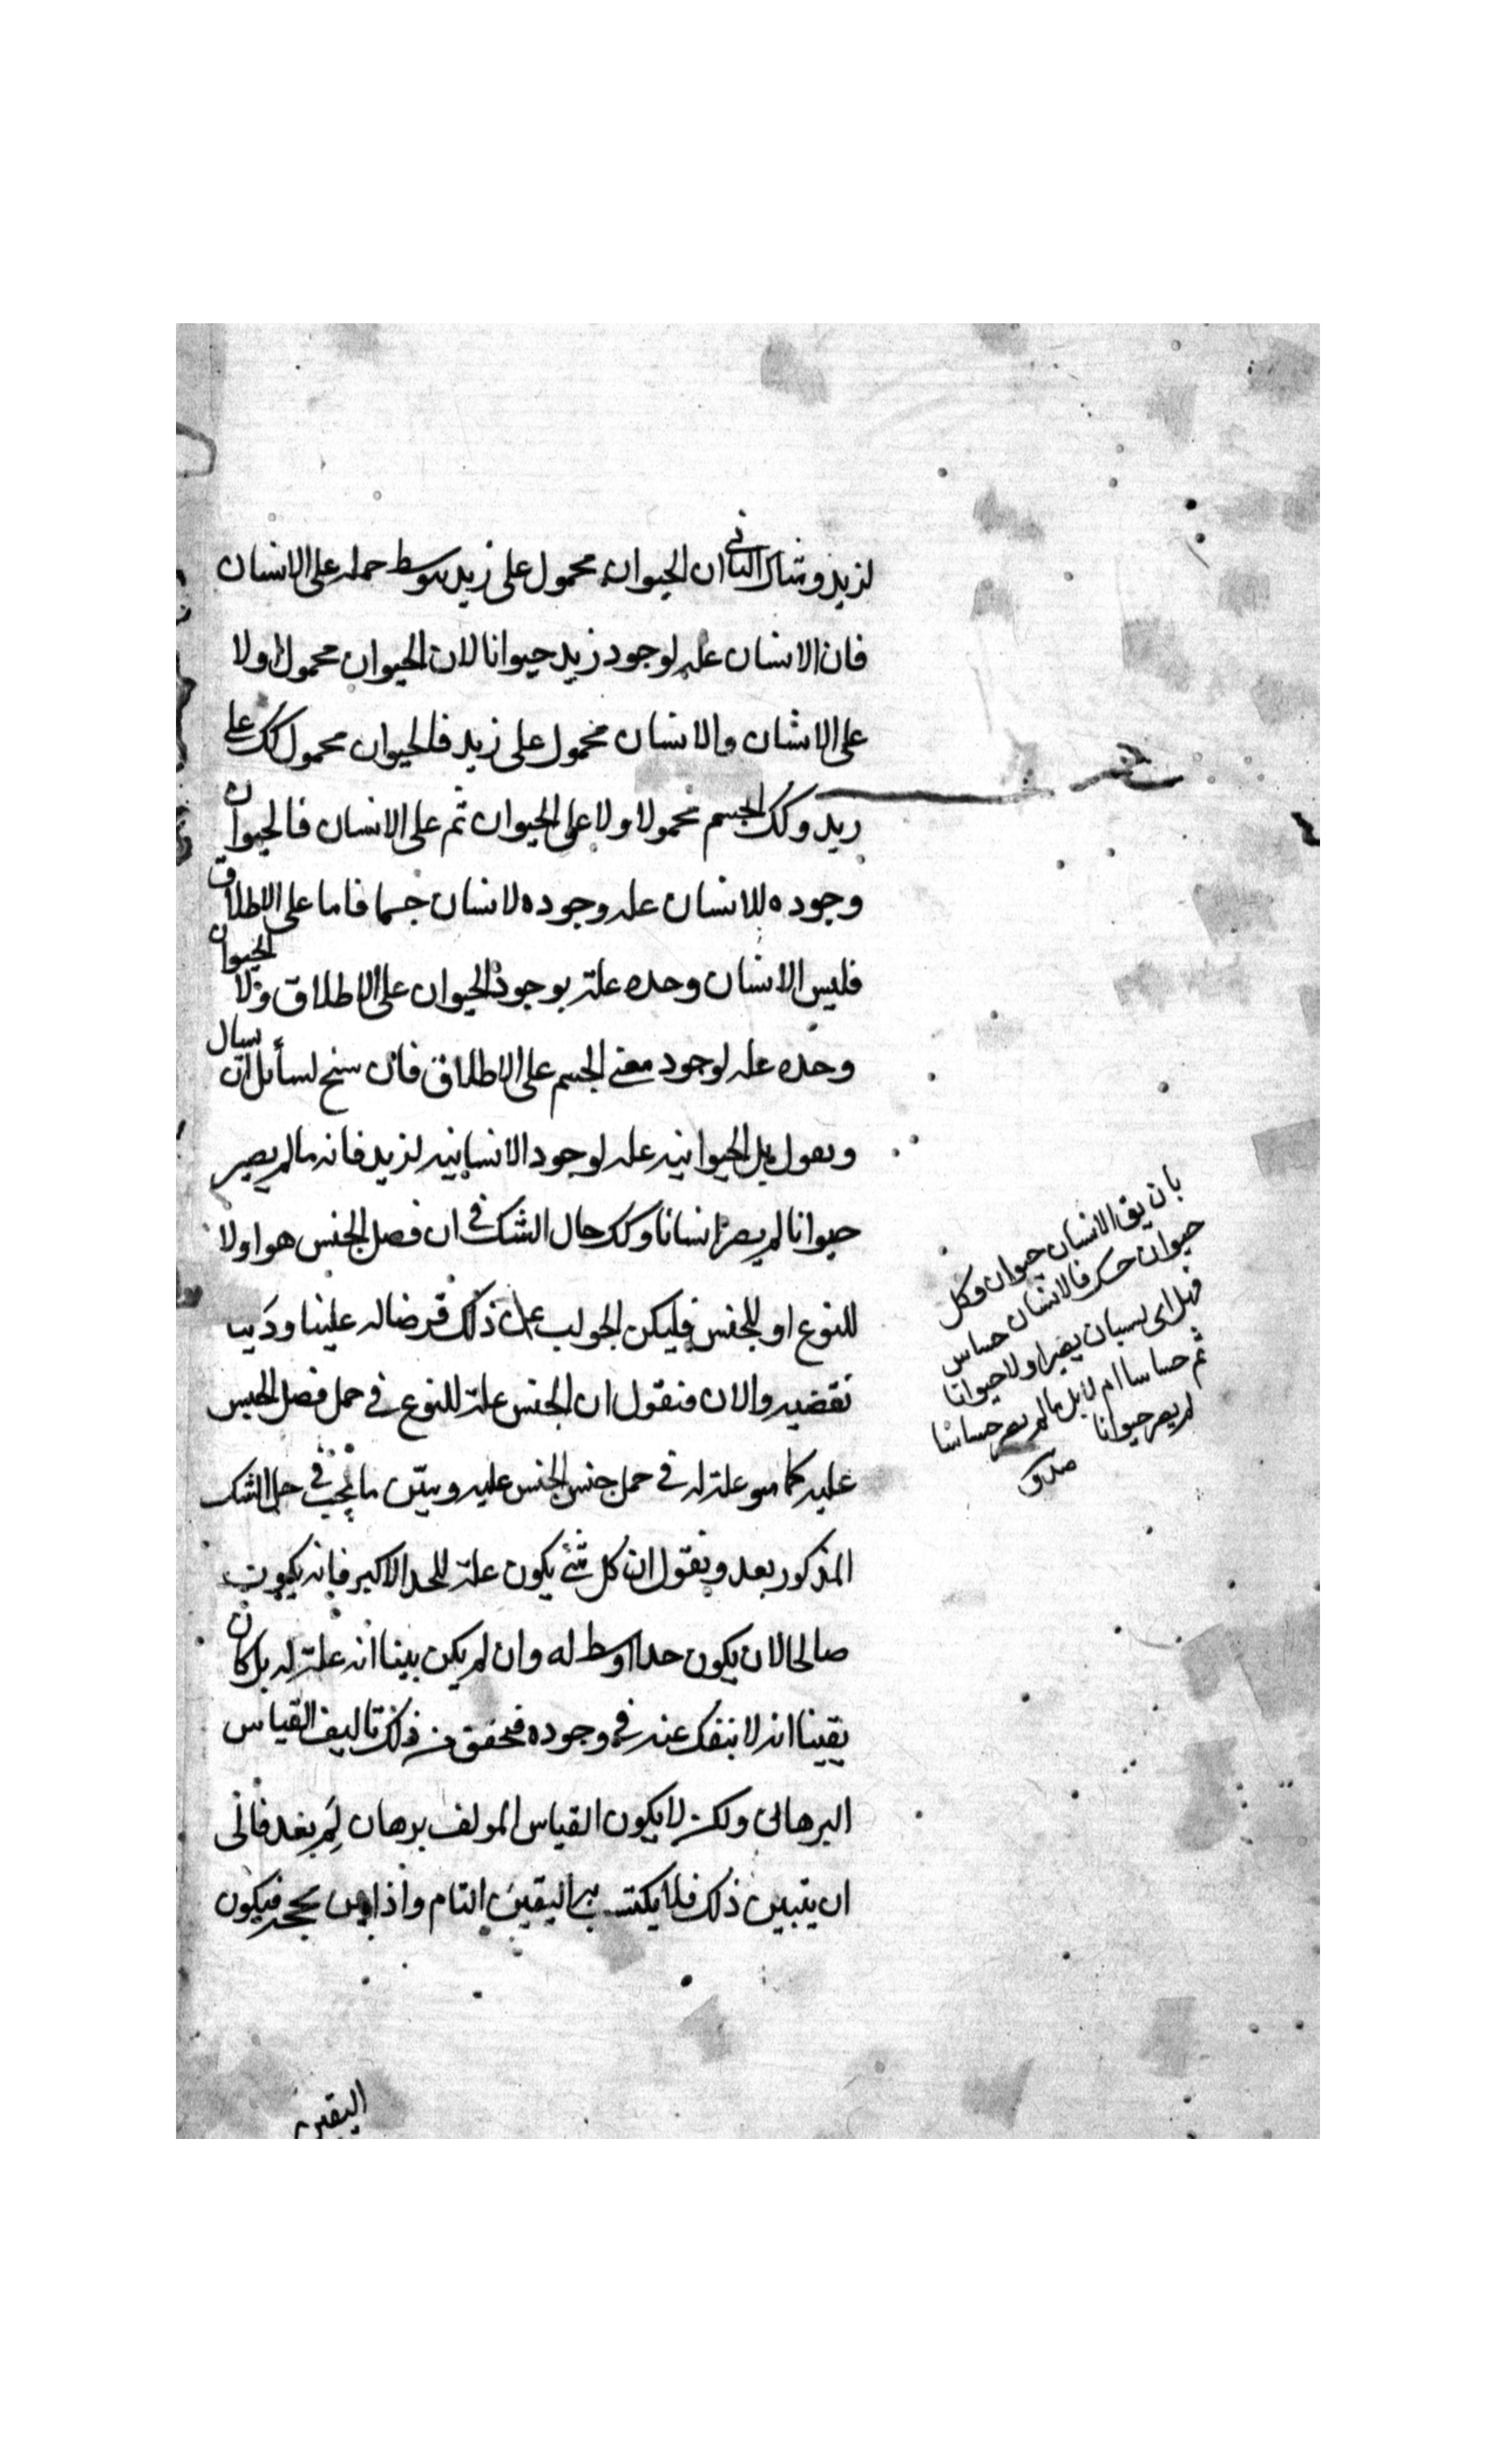 لزيد ومثال الثاني ان الحيوان محمول على زيد بتوسط حمله على الانسان
فان الانسان عله لوجود زيد حيوانا لان الحيوان محمول اولا
على الانسان والانسان محمول على زيد فالحيوان محمول كك على
زيد وكك الجسم محمول اولا على الحيوان ثم على الانسان فالحيوان
وجوده للانسان عله وجوده لانسان جسما فاما على الاطلاق
فليس الانسان وحده علة بوجود الحيوان على الاطلاق ولا الحيوان
وحده عله لوجود معنى الجسم على الاطلاق فان سنح لسائل ان يسال
ويقول بل الحيوانيه عله لوجود الانسانيه لزيد فانه ما لم يصير
حيوانا لم يصر انسانا وكك حال الشك في ان فصل الجنس هو اولا
للنوع او للجنس فليكن الجواب عن ذلك قرضا له علينا ودينا
نقضيه والان فنقول ان الجنس علة للنوع في حمل فصل الجنس
عليه كما هو علة له في حمل جنس الجنس عليه وسيبين ما يجب في حل الشك
المذكور بعد ونقول ان كل شئ يكون علة للحد الاكبر فانه يكون
صالحا لان يكون حدا اوسط له وان لم يكن بينا انه علة له بل كان
يقينا انه لا ينفك عنه في وجوده فتحقق من ذلك تاليف القياس
البرهاني ولكن لا يكون القياس المولف برهان لم بعد فالى
ان يتبين ذلك فلا يكتسب به اليقين التام واذا بحجه فيكون
اليقين
بان يق الانسان حيوان وكل
حيوان حساس فالانسان حساس
فهل اى انسان يصير اولا حيوانا
ثم حساسا ام لا بل ما لم يصر حساسا
لم يصر حيوانا